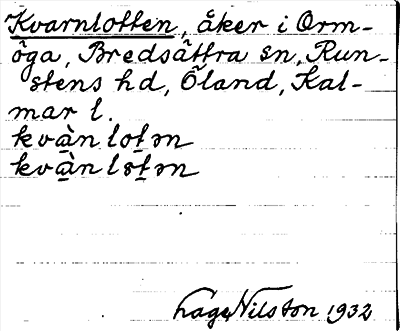 Kvarnlotten, åker i Orm-
öga, Bredsättra sn, Run-
stens hd, Öland, Kal-
mar l.
kvàn lotən
kvàn l8tən
Lage Nilsson 1932